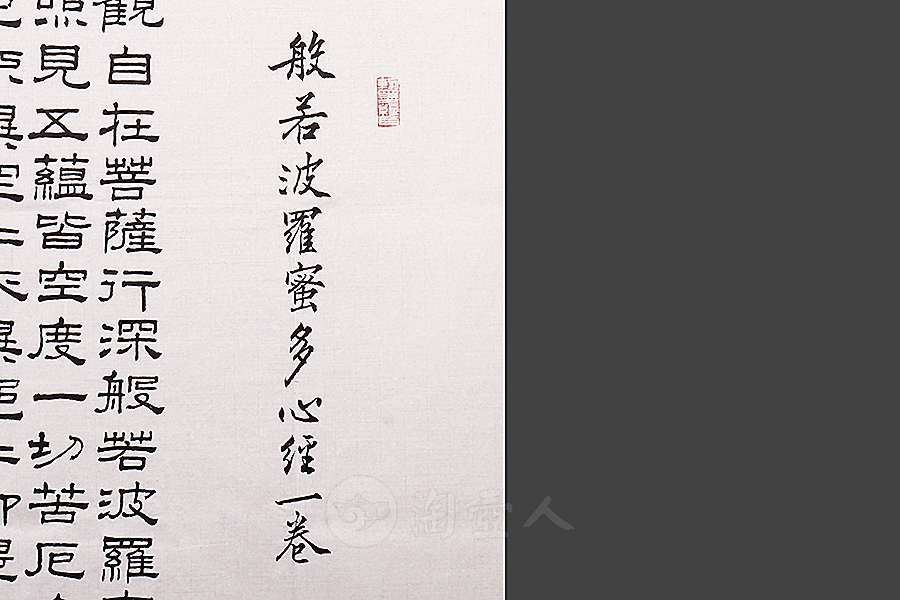 般若波羅蜜多心經一卷
觀自在菩薩行深般若波羅
照見五蘊皆空度一切苦厄
異空
異色
即是
淘靈人